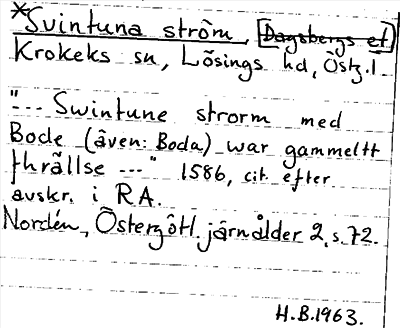 *Svintuna ström, [Dagsbergs et]
Krokeks sn, Lösings hd, Östg.l.
"--- Swintune strorm med
Bode (även: Boda) war gammeltt
thrällse ---" 1586, cit. efter
avskr. i RA.
Nordén, Östergötl. järnålder 2, s. 72.
H.B. 1963.